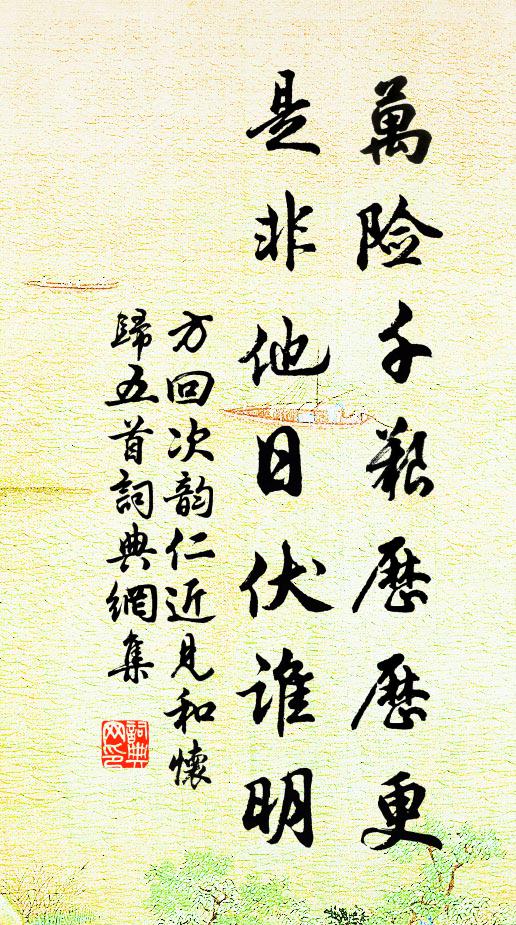 萬险千艱歷歷更
是非他日伏谁明
方回次韵仁近見和懷
歸五首詞典網集
詞典
网印